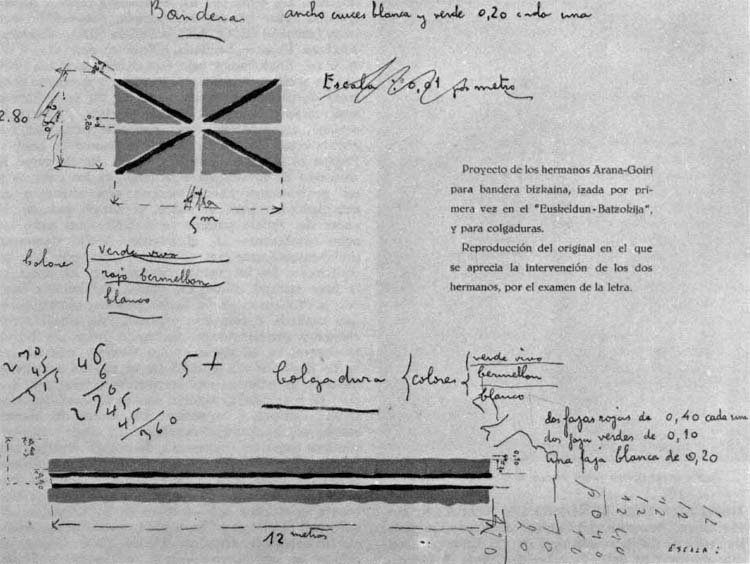 Bandera ancho cruces blanca y verde 0,20 cada una
Escala 0,01 por metro
2.80
0.20
5 m
Proyecto de los hermanos Arana-Goiri
para bandera bizkaina, izada por pri-
mera vez en el "Euskeldun-Batzokija",
y para colgaduras.
Reproducción del original en el que
se aprecia la intervención de los dos
hermanos, por el examen de la letra.
Colores
verde vivo
rojo bermellon
blanco
270
45
315
46
6
270
45
45
360
5+
Colgadura
colores
verde vivo
bermellon
blanco
dos fajas rojas de 0,40 cada una
dos fajas verdes de 0,10
una faja blanca de 0,20
0,10
12 metros
12
12
12
12
ESCALA: